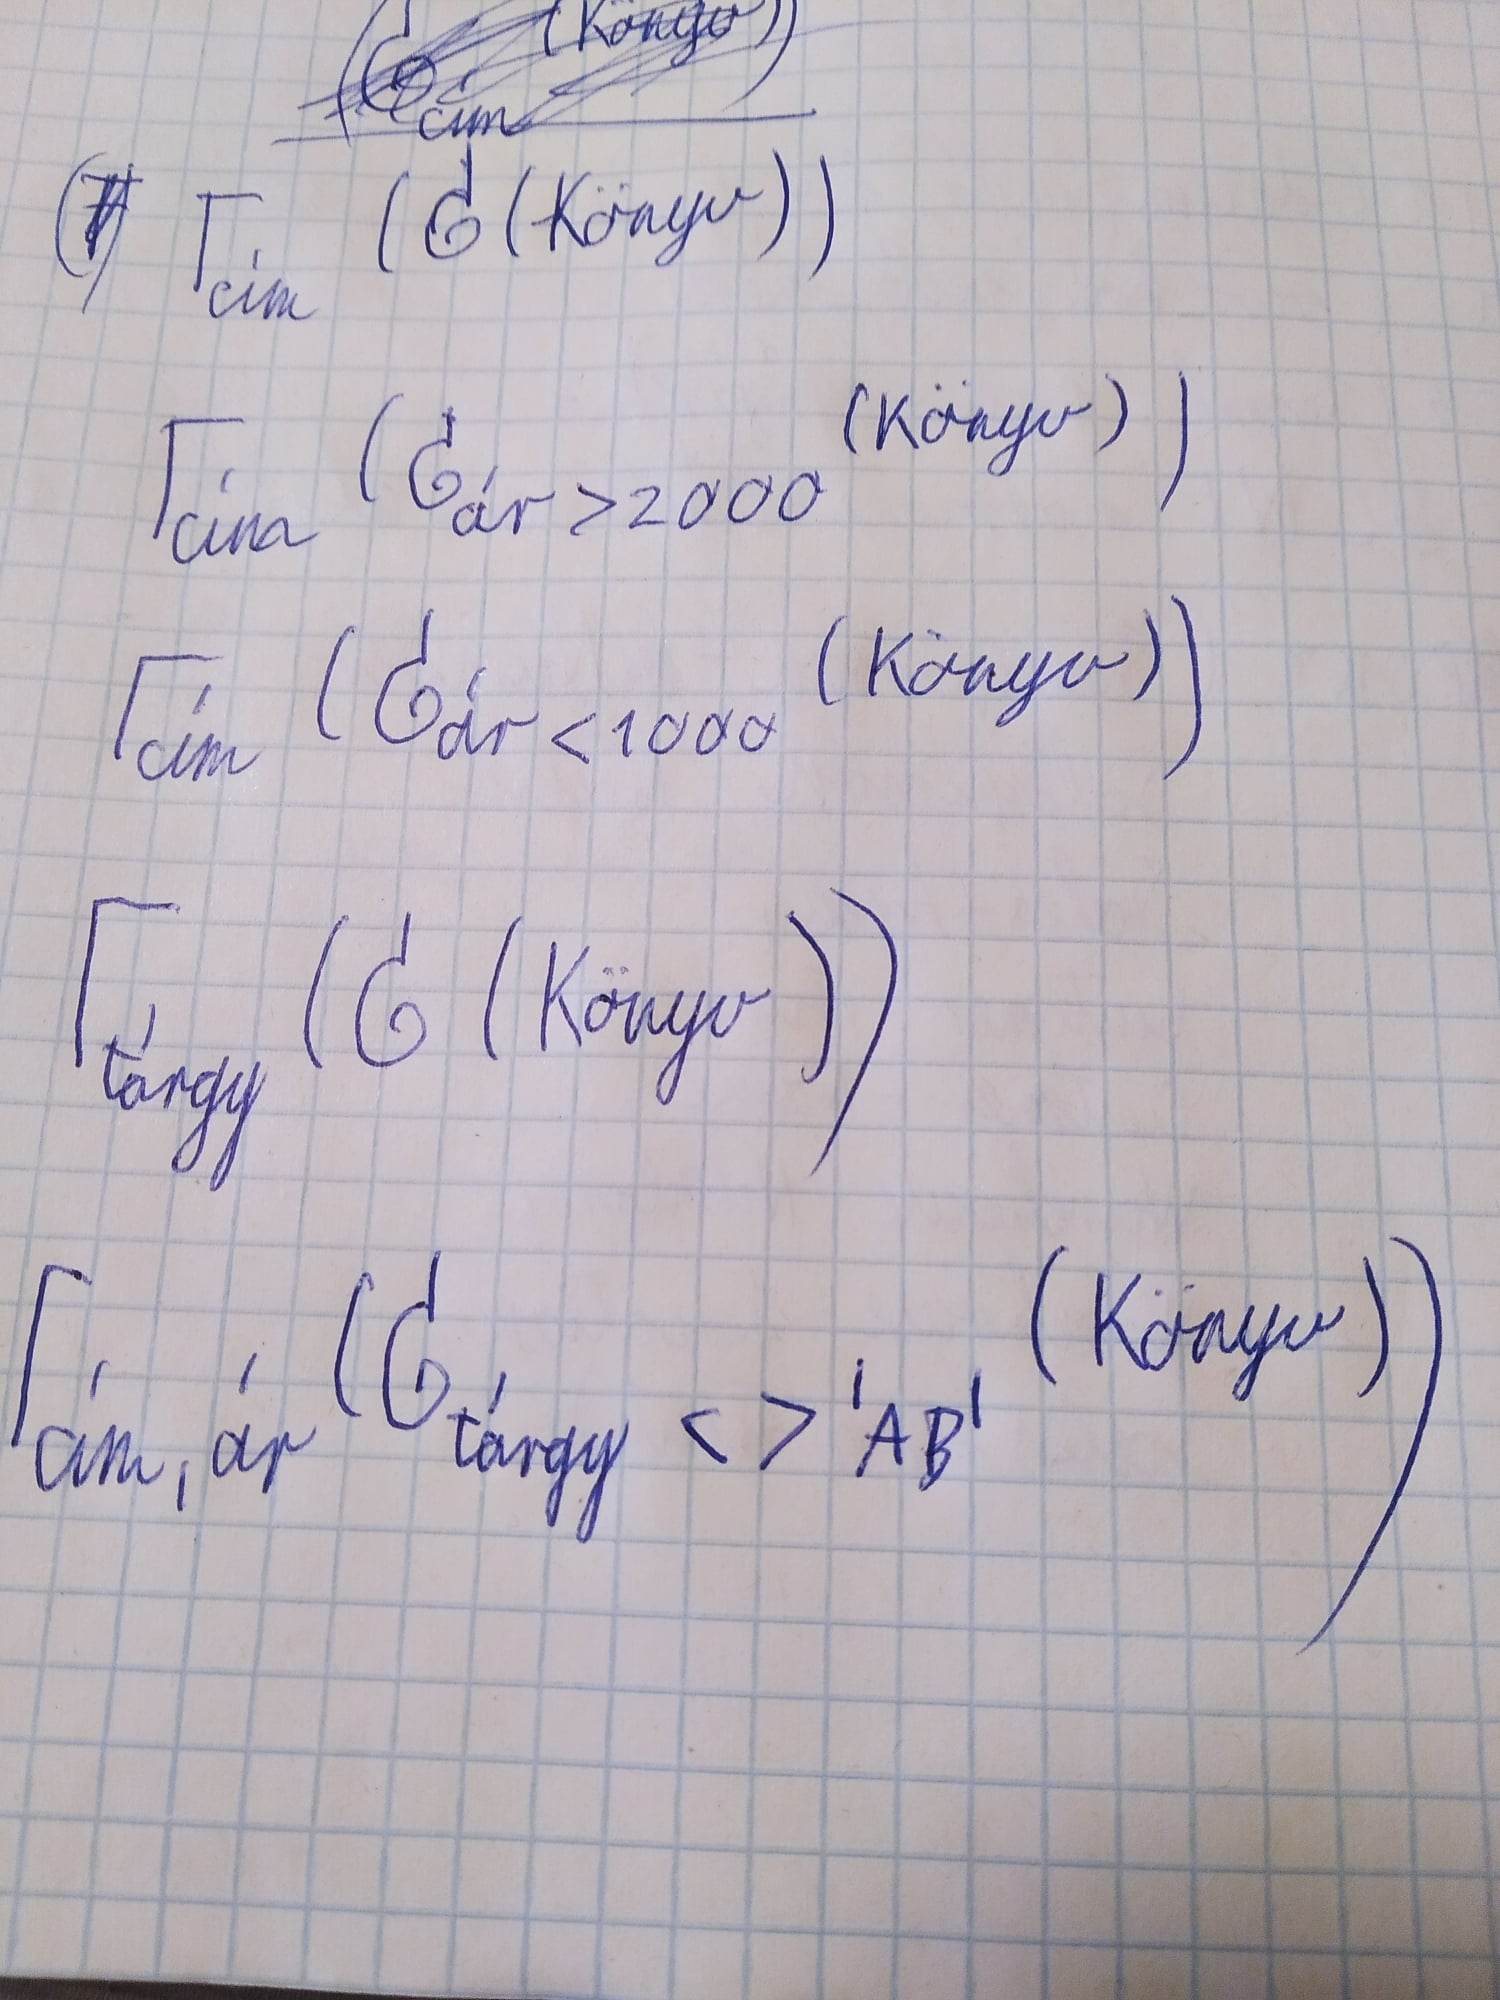 (Könyv)
cím
Γ cím (σ (Könyv))
Γ cím (σ ár > 2000 (Könyv))
Γ cím (σ ár < 1000 (Könyv))
Γ tárgy (σ (Könyv))
Γ cím, ár (σ tárgy <> 'AB' (Könyv))